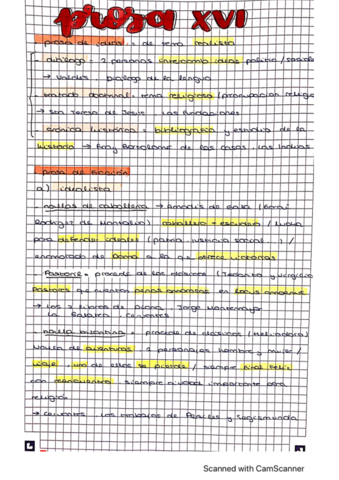 prosa XVI
- prosa de ideas: = de tema realista
- diálogo = 2 personas intercambio ideas política / sociales
→ Valdés Diálogo de la lengua
- tratado doctrinal = tema religioso (preocupación religiosa
→ San Teresa de Jesús Las
- crónica histórica = bibliografía y estudio de la
historia → Fray Bartolomé de las Casas. Las Indias
- prosa de ficción
a) idealista
- novelas de caballería → Amadís de Gaula (Garci
Rodríguez de Montalvo) caballero + escudero / lucha
para defender ideales (patria, justicia social...) /
enamorado de dama a la que ofrece victorias
- Pastoril = procede de los clásicos (Teócrito y Virgilio
pastores que cuentan penas amorosas en locus amoenus
→ Los 7 libros de Diana Jorge Montemayor
La Galatea Cervantes
- novela bizantina = procede de clásicos (Heliodoro)
novela de aventuras 2 personajes hombre y mujer /
viaje, uno de ellos se pierde / siempre final feliz
con reencuentro siempre ciudad importante para
religión
→ Cervantes Los trabajos de Persiles y Segismunda
Scanned with CamScanner